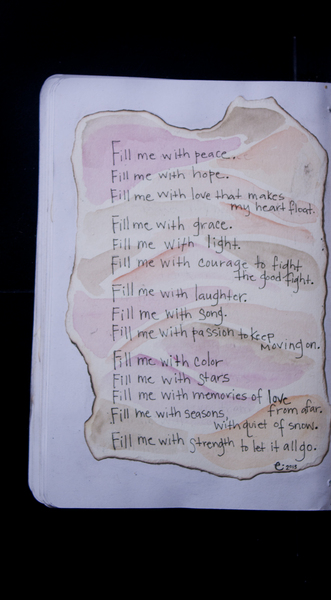 Fill me with peace.
Fill me with hope.
Fill me with love that makes
my heart float.
Fill me with grace.
Fill me with light.
Fill me with courage to fight
the good fight.
Fill me with laughter.
Fill me with song.
Fill me with passion to keep
moving on.
Fill me with color
Fill me with stars
Fill me with memories of love
from afar.
Fill me with seasons,
with quiet of snow.
Fill me with strength to let it all go.